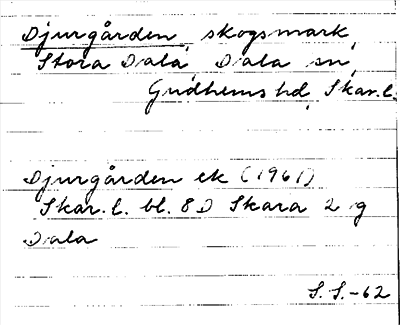 Djurgården, skogsmark,
Stora Dala, Dala sn,
Gudhems hd, Skar. l.
Djurgården ek (1961)
Skar. l. bl. 8 D Skara 2 g
Dala
S. S. -62